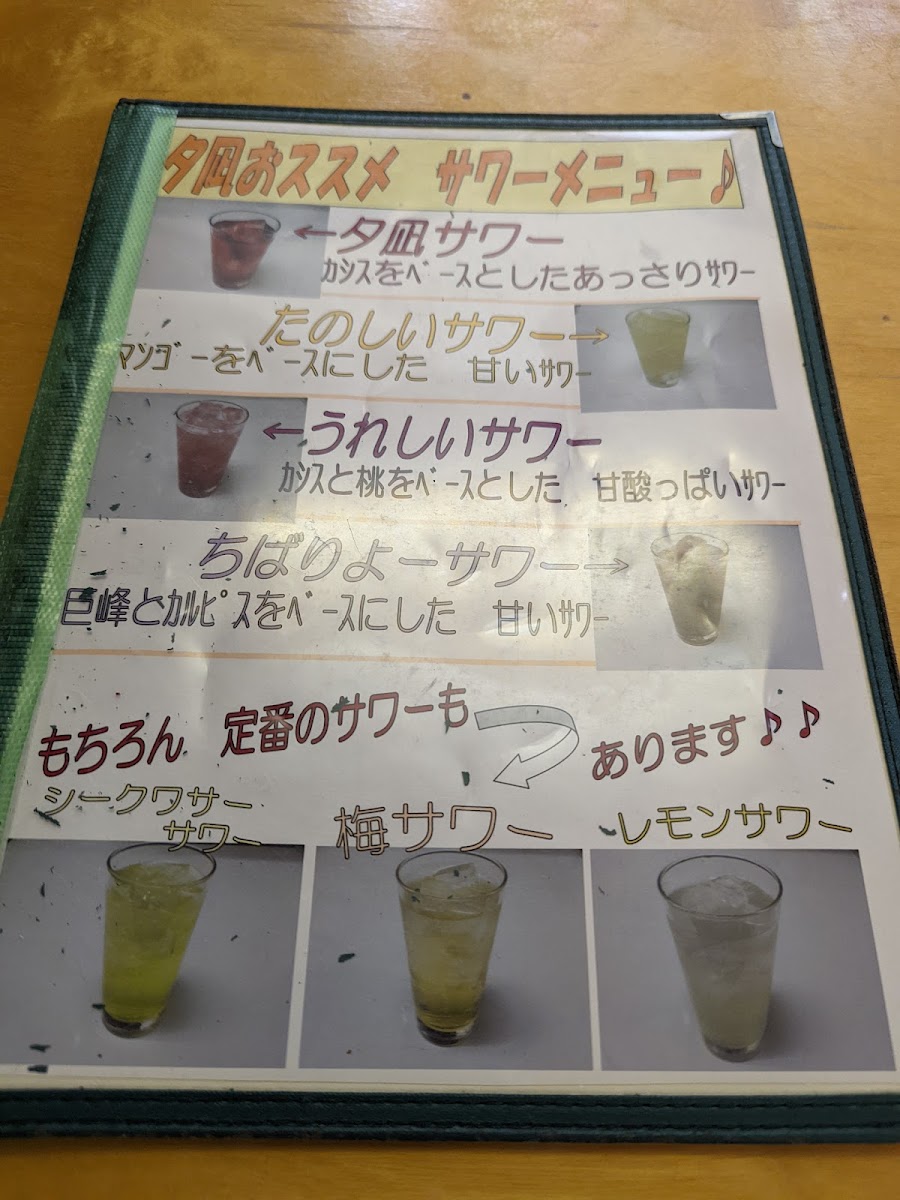 夕凪おススメ　サワーメニュー♪
←夕凪サワー
ｶｼｽをﾍﾞｰｽとしたあっさりｻﾜｰ
たのしいサワー→
ﾏﾝｺﾞｰをﾍﾞｰｽにした　甘いｻﾜｰ
←うれしいサワー
ｶｼｽと桃をﾍﾞｰｽとした　甘酸っぱいｻﾜｰ
ちばりよーサワー→
巨峰とｶﾙﾋﾟｽをﾍﾞｰｽにした　甘いｻﾜｰ
もちろん　定番のサワーも
あります♪♪
シークワサー
サワー
梅サワー
レモンサワー